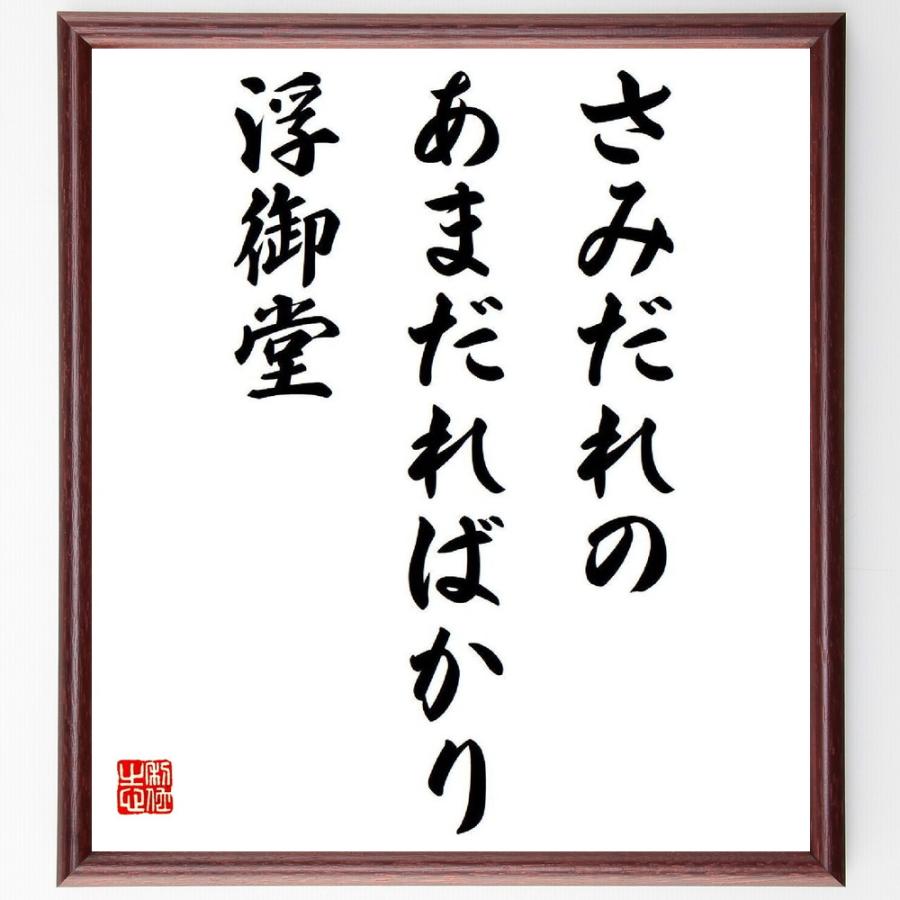 さみだれの
あまだればかり
浮御堂